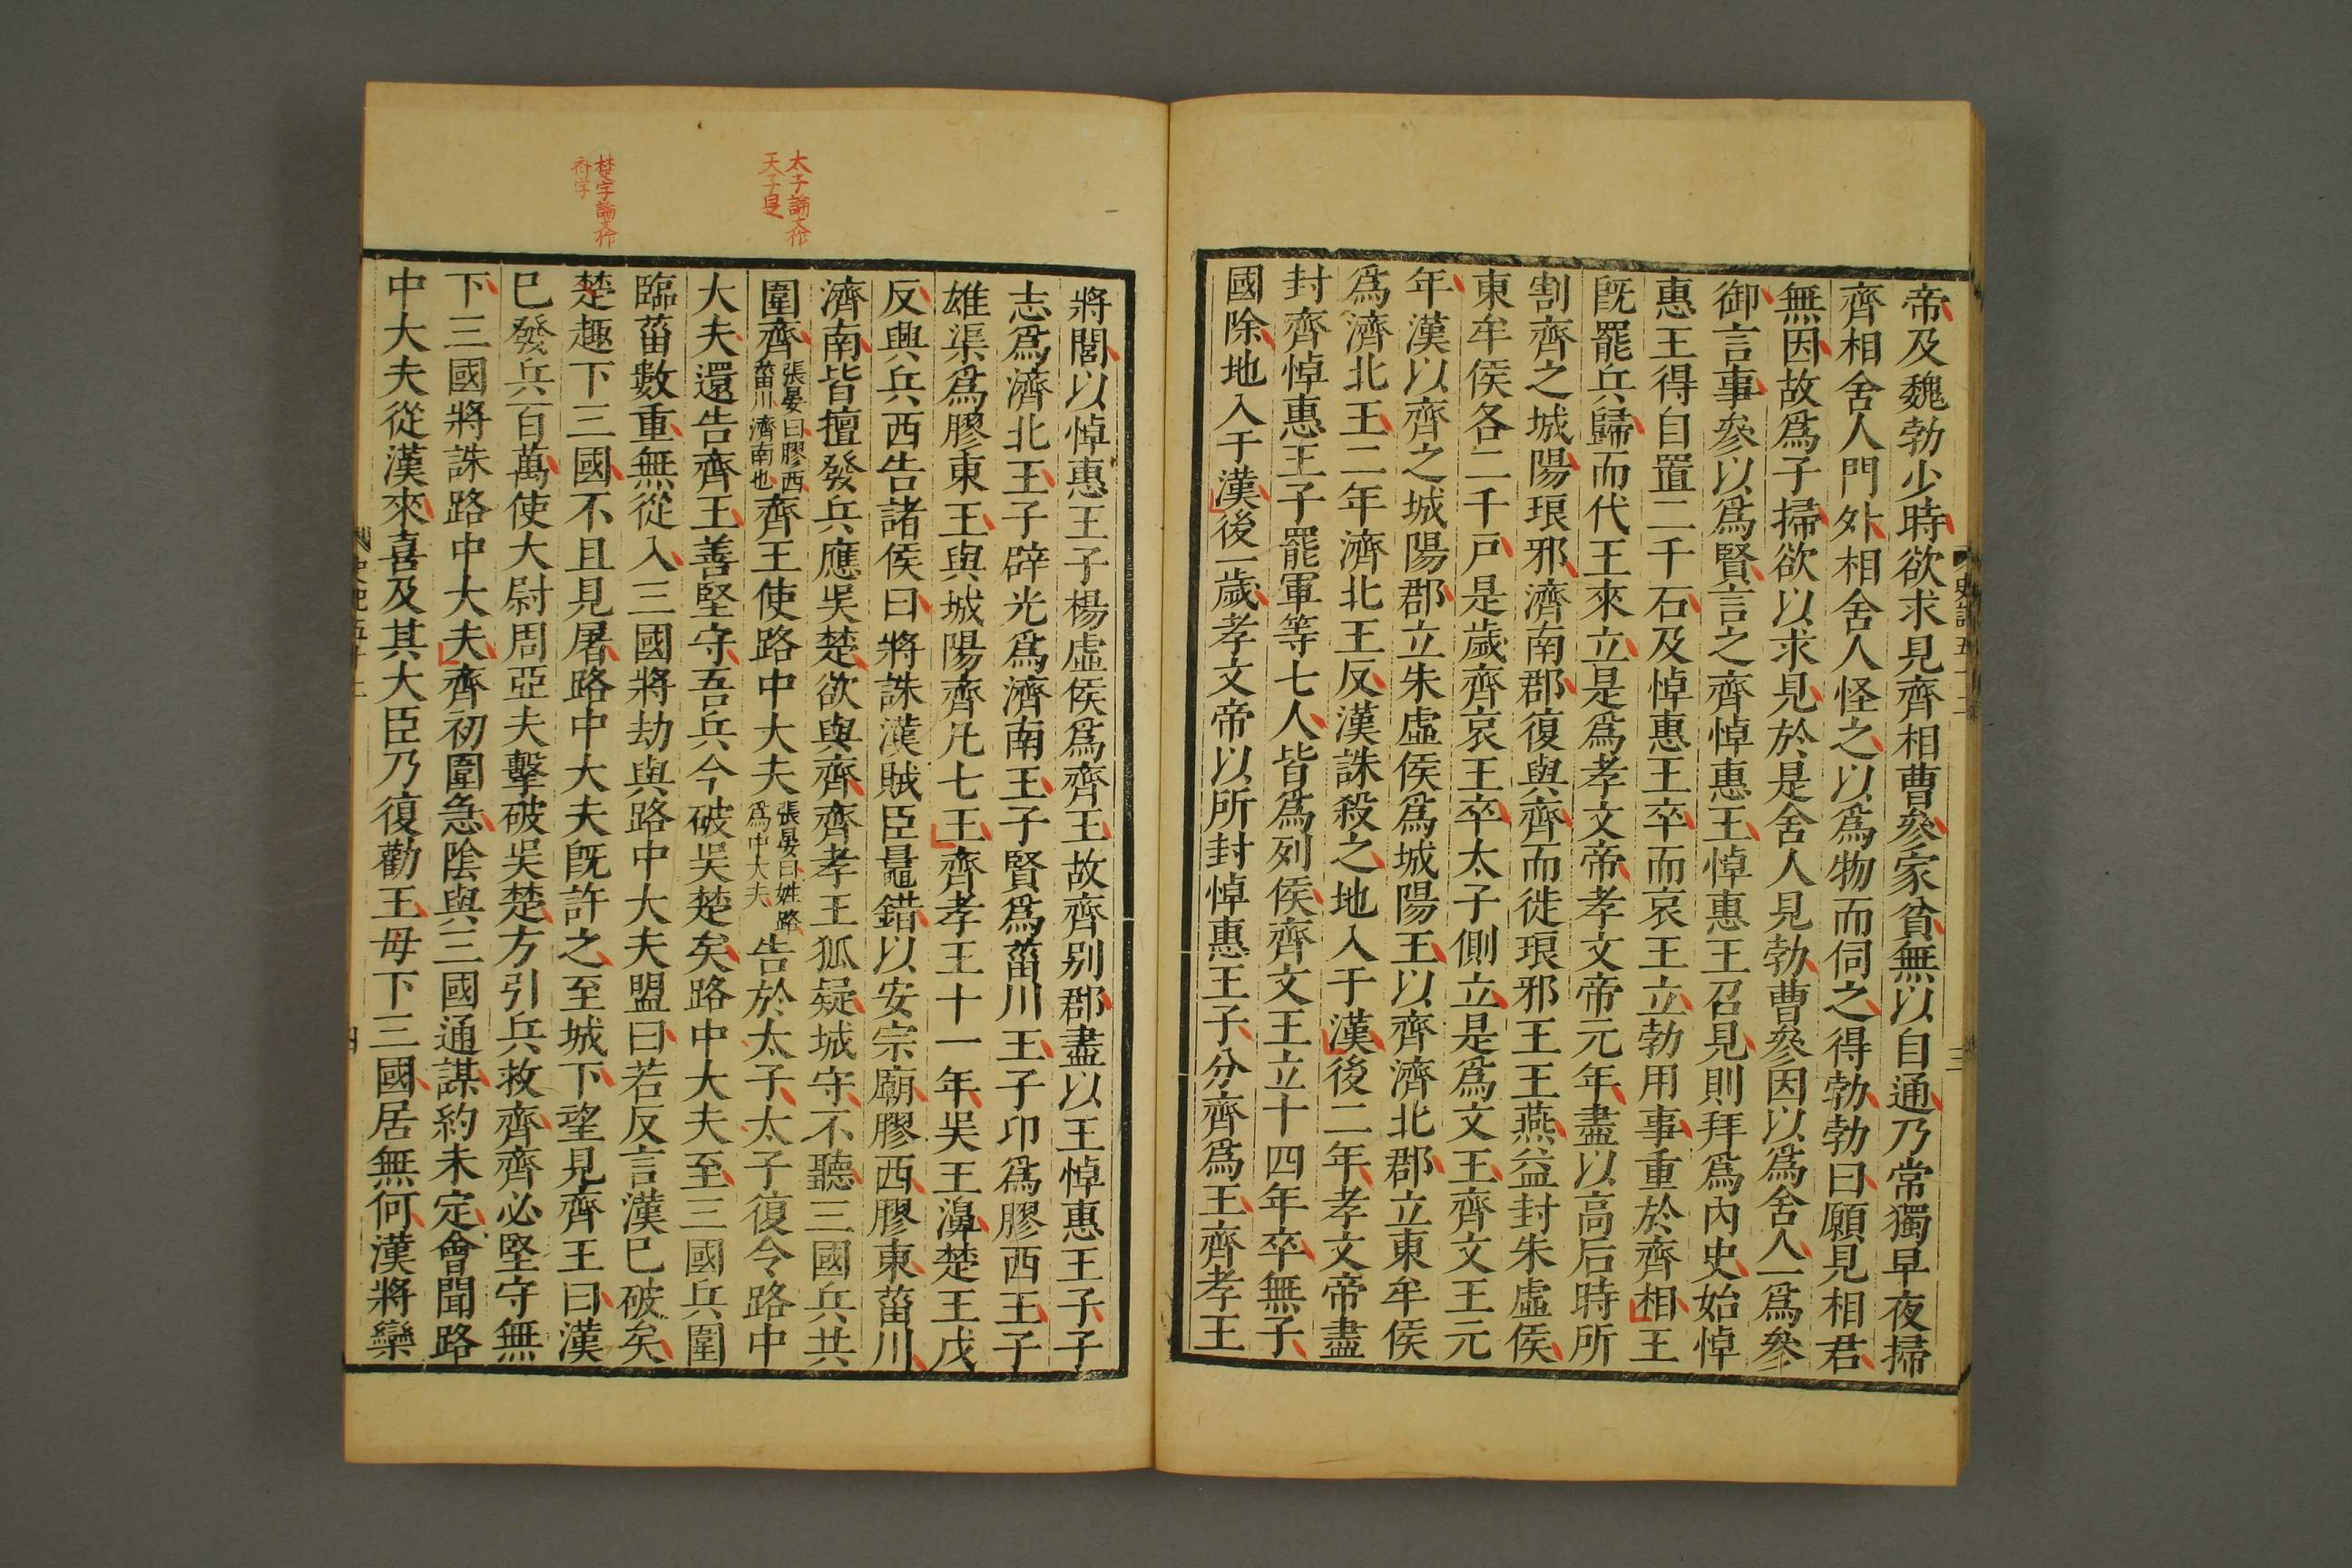 帝及魏勃少時欲求見齊相曹參家貧無以自通乃常獨早夜掃
齊相舍人門外相舍人怪之以爲物而伺之得勃勃曰願見相君
無因故爲子掃欲以求見於是舍人見勃曹參因以爲舍人一爲參
御言事參以爲賢言之齊悼惠王悼惠王召見則拜爲內史始悼
惠王得自置二千石及悼惠王卒而哀王立勃用事重於齊相王
旣罷兵歸而代王來立是爲孝文帝孝文帝元年盡以高后時所
割齊之城陽琅邪濟南郡復與齊而徙琅邪王王燕益封朱虛侯
東牟侯各二千戶是歲齊哀王卒太子側立是爲文王齊文王元
年漢以齊之城陽郡立朱虛侯爲城陽王以齊濟北郡立東牟侯
爲濟北王二年濟北王反漢誅殺之地入于漢後二年孝文帝盡
封齊悼惠王子罷軍等七人皆爲列侯齊文王立十四年卒無子
國除地入于漢後一歲孝文帝以所封悼惠王子分齊爲王齊孝王
史記五十二
三
太子論文作
天子是
楚字論文作
符字
將閭以悼惠王子楊虛侯爲齊王故齊別郡盡以王悼惠王子子
志爲濟北王子辟光爲濟南王子賢爲菑川王子卬爲膠西王子
雄渠爲膠東王與城陽齊凡七王齊孝王十一年吳王濞楚王戊
反興兵西告諸侯曰將誅漢賊臣鼂錯以安宗廟膠西膠東菑川
濟南皆擅發兵應吳楚欲與齊齊孝王狐疑城守不聽三國兵共
圍齊張晏曰膠西菑川濟南也齊王使路中大夫張晏曰姓路爲中大夫告於太子太子復令路中
大夫還告齊王善堅守吾兵今破吳楚矣路中大夫至三國兵圍
臨菑數重無從入三國將劫與路中大夫盟曰若反言漢已破矣
楚趣下三國不且見屠路中大夫旣許之至城下望見齊王曰漢
已發兵百萬使大尉周亞夫擊破吳楚方引兵救齊齊必堅守無
下三國將誅路中大夫齊初圍急陰與三國通謀約未定會聞路
中大夫從漢來喜及其大臣乃復勸王毋下三國居無何漢將欒